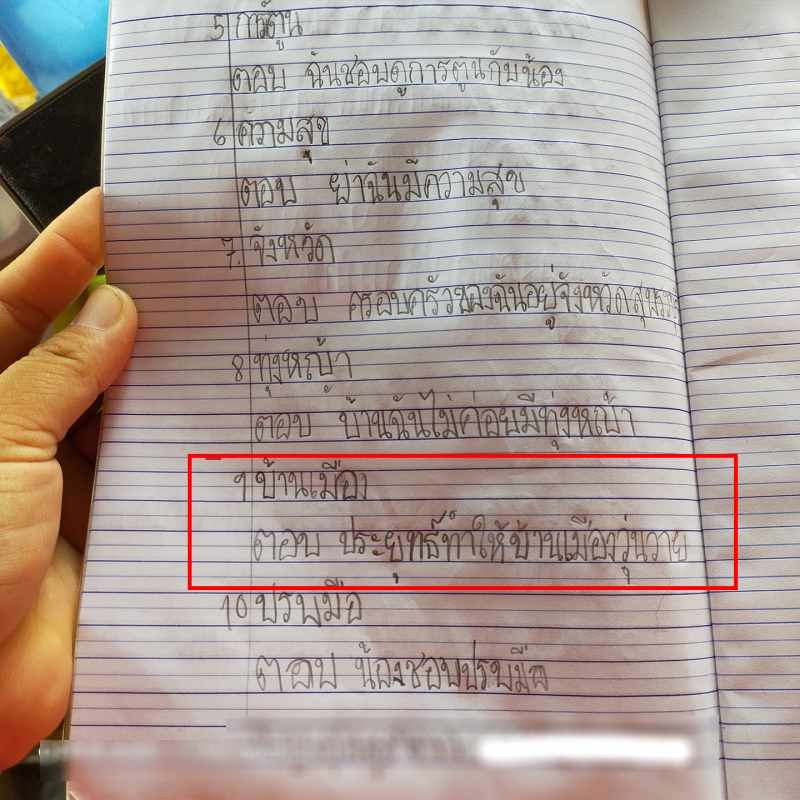 5 การ์ตูน
ตอบ ฉันชอบดูการตูนกับน้อง
6 ความสุข
ตอบ ย่าฉันมีความสุข
7. จังหวัด
ตอบ ครอบครัวของฉันอยู่จังหวัด
8 ทุ่งหญ้า
ตอบ บ้านฉันไม่ค่อยมีทุ่งหญ้า
9 บ้านเมือง
ตอบ ประยุทธ์ทำให้บ้านเมืองวุ่นวาย
10 ปรบมือ
ตอบ น้องชอบปรบมือ